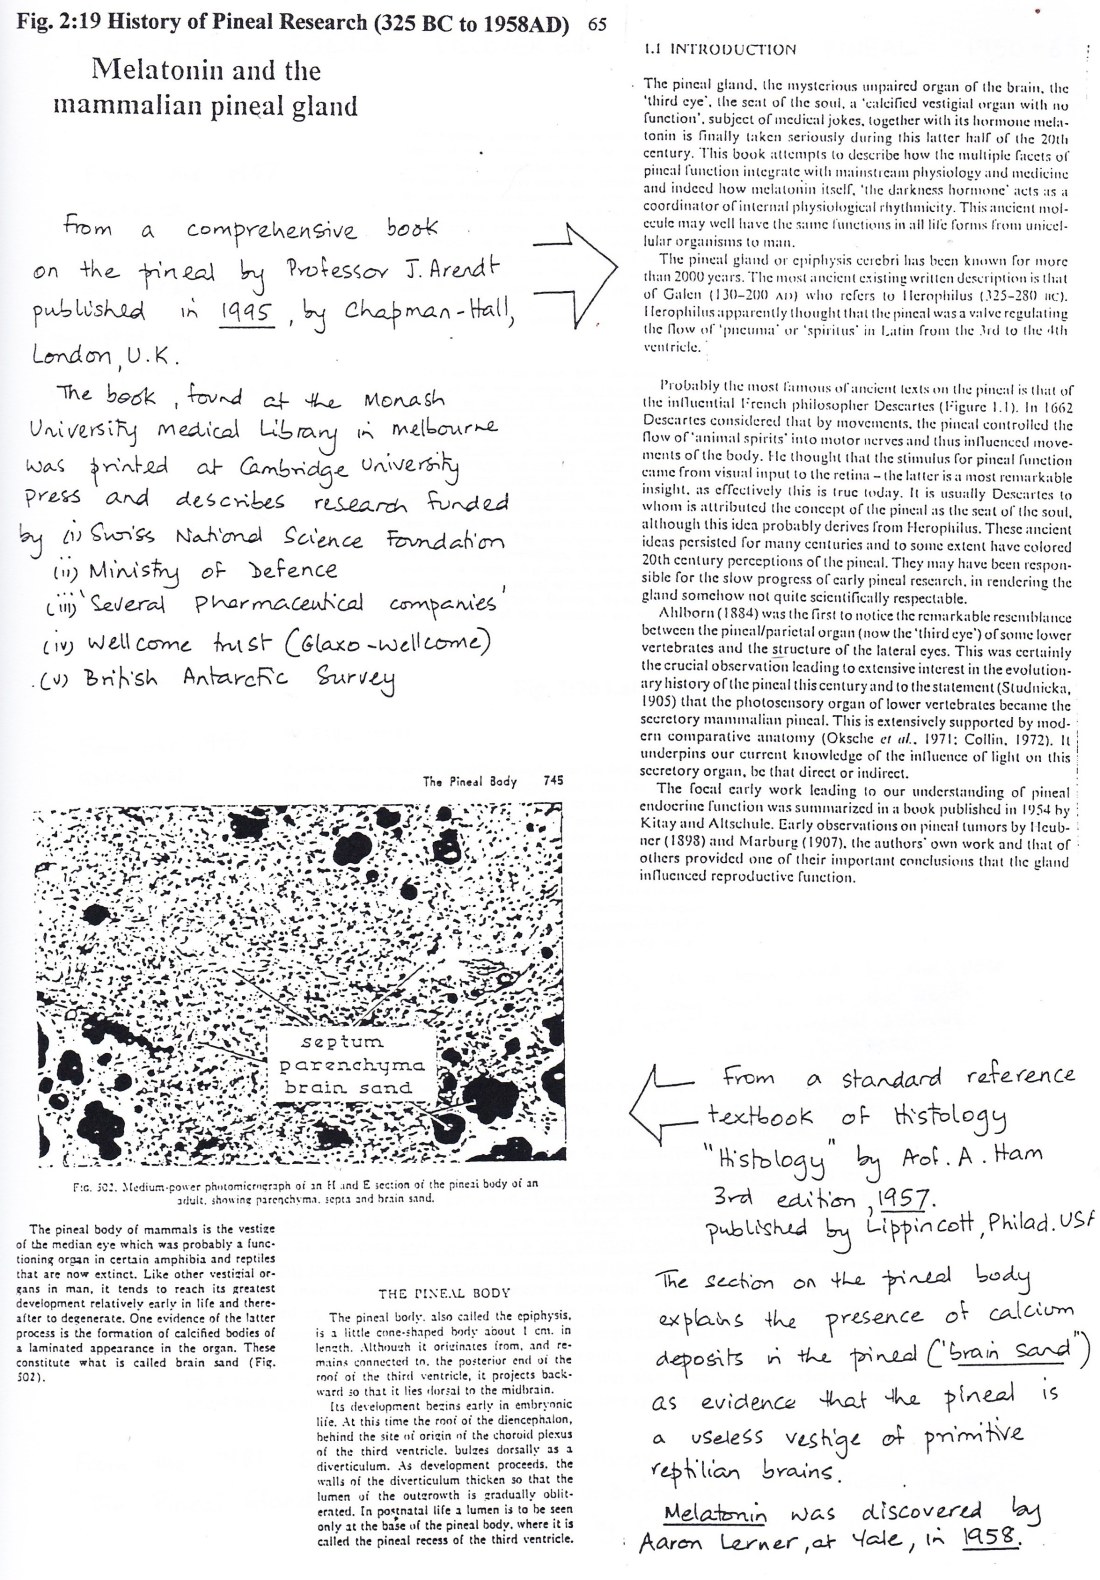 Fig. 2:19 History of Pineal Research (325 BC to 1958AD) 65
Melatonin and the
mammalian pineal gland
From a comprehensive book
on the pineal by Professor J. Arendt
published in 1995, by Chapman-Hall,
London, U.K.
The book, found at the Monash
University medical Library in melbourne
was printed at Cambridge University
press and describes research funded
by (i) Swiss National Science Foundation
(ii) Ministry of Defence
(iii) 'Several Pharmaceutical companies'
(iv) Wellcome trust (Glaxo-wellcome)
(v) British Antarctic Survey
1.1 INTRODUCTION
The pineal gland, the mysterious unpaired organ of the brain, the
'third eye', the seat of the soul, a 'calcified vestigial organ with no
function', subject of medical jokes, together with its hormone mela-
tonin is finally taken seriously during this latter half of the 20th
century. This book attempts to describe how the multiple facets of
pineal function integrate with mainstream physiology and medicine
and indeed how melatonin itself, 'the darkness hormone' acts as a
coordinator of internal physiological rhythmicity. This ancient mol-
ecule may well have the same functions in all life forms from unicel-
lular organisms to man.
The pineal gland or epiphysis cerebri has been known for more
than 2000 years. The most ancient existing written description is that
of Galen (130–200 AD) who refers to Herophilus (325–280 BC).
Herophilus apparently thought that the pineal was a valve regulating
the flow of 'pneuma' or 'spiritus' in Latin from the 3rd to the 4th
ventricle.
Probably the most famous of ancient texts on the pineal is that of
the influential French philosopher Descartes (Figure 1.1). In 1662
Descartes considered that by movements, the pineal controlled the
flow of 'animal spirits' into motor nerves and thus influenced move-
ments of the body. He thought that the stimulus for pineal function
came from visual input to the retina – the latter is a most remarkable
insight, as effectively this is true today. It is usually Descartes to
whom is attributed the concept of the pineal as the seat of the soul,
although this idea probably derives from Herophilus. These ancient
ideas persisted for many centuries and to some extent have colored
20th century perceptions of the pineal. They may have been respon-
sible for the slow progress of early pineal research, in rendering the
gland somehow not quite scientifically respectable.
Ahlborn (1884) was the first to notice the remarkable resemblance
between the pineal/parietal organ (now the 'third eye') of some lower
vertebrates and the structure of the lateral eyes. This was certainly
the crucial observation leading to extensive interest in the evolution-
ary history of the pineal this century and to the statement (Studnicka,
1905) that the photosensory organ of lower vertebrates became the
secretory mammalian pineal. This is extensively supported by mod-
ern comparative anatomy (Oksche et al., 1971; Collin, 1972). It
underpins our current knowledge of the influence of light on this
secretory organ, be that direct or indirect.
The focal early work leading to our understanding of pineal
endocrine function was summarized in a book published in 1954 by
Kitay and Altschule. Early observations on pineal tumors by Heub-
ner (1898) and Marburg (1907), the authors' own work and that of
others provided one of their important conclusions that the gland
influenced reproductive function.
The Pineal Body 745
septum
parenchyma
brain sand
FIG. 502. Medium-power photomicrograph of an H and E section of the pineal body of an
adult, showing parenchyma, septa and brain sand.
The pineal body of mammals is the vestige
of the median eye which was probably a func-
tioning organ in certain amphibia and reptiles
that are now extinct. Like other vestigial or-
gans in man, it tends to reach its greatest
development relatively early in life and there-
after to degenerate. One evidence of the latter
process is the formation of calcified bodies of
a laminated appearance in the organ. These
constitute what is called brain sand (Fig.
502).
THE PINEAL BODY
The pineal body, also called the epiphysis,
is a little cone-shaped body about 1 cm. in
length. Although it originates from, and re-
mains connected to, the posterior end of the
roof of the third ventricle, it projects back-
ward so that it lies dorsal to the midbrain.
Its development begins early in embryonic
life. At this time the roof of the diencephalon,
behind the site of origin of the choroid plexus
of the third ventricle, bulges dorsally as a
diverticulum. As development proceeds, the
walls of the diverticulum thicken so that the
lumen of the outgrowth is gradually oblit-
erated. In postnatal life a lumen is to be seen
only at the base of the pineal body, where it is
called the pineal recess of the third ventricle.
From a standard reference
textbook of Histology
"Histology" by Prof. A. Ham
3rd edition, 1957.
published by Lippincott, Philad. USA
The section on the pineal body
explains the presence of calcium
deposits in the pineal ('brain sand")
as evidence that the pineal is
a useless vestige of primitive
reptilian brains.
Melatonin was discovered by
Aaron Lerner, at Yale, in 1958.